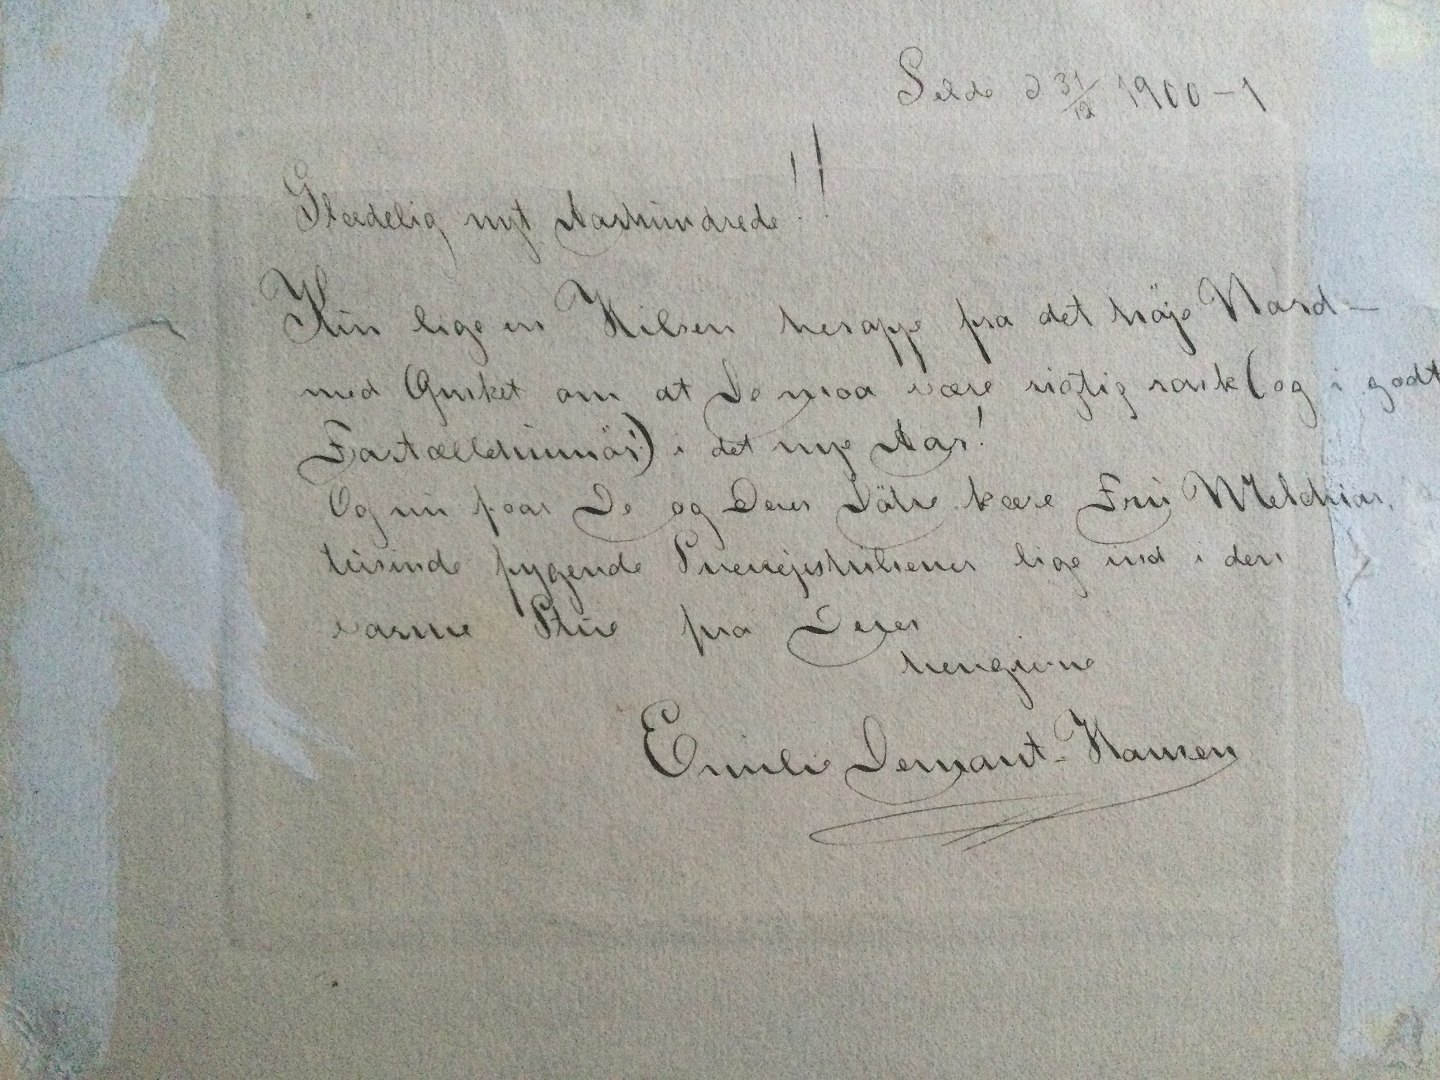 Selde d 31/12 1900-1
Glædelig nyt Aarhundrede!!
Kun lige en Hilsen heroppe fra det höje Nord—
med Ønsket om at De maa være rigtig rask (og i godt
Fortællehumör!) i det nye Aar!
Og nu faar De og Deres Dötre kære Fru Melchior,
tusinde fygende Snevejrshilsener lige ind i den
varme Stue fra Deres
hengivne
Emilie Demant-Hansen